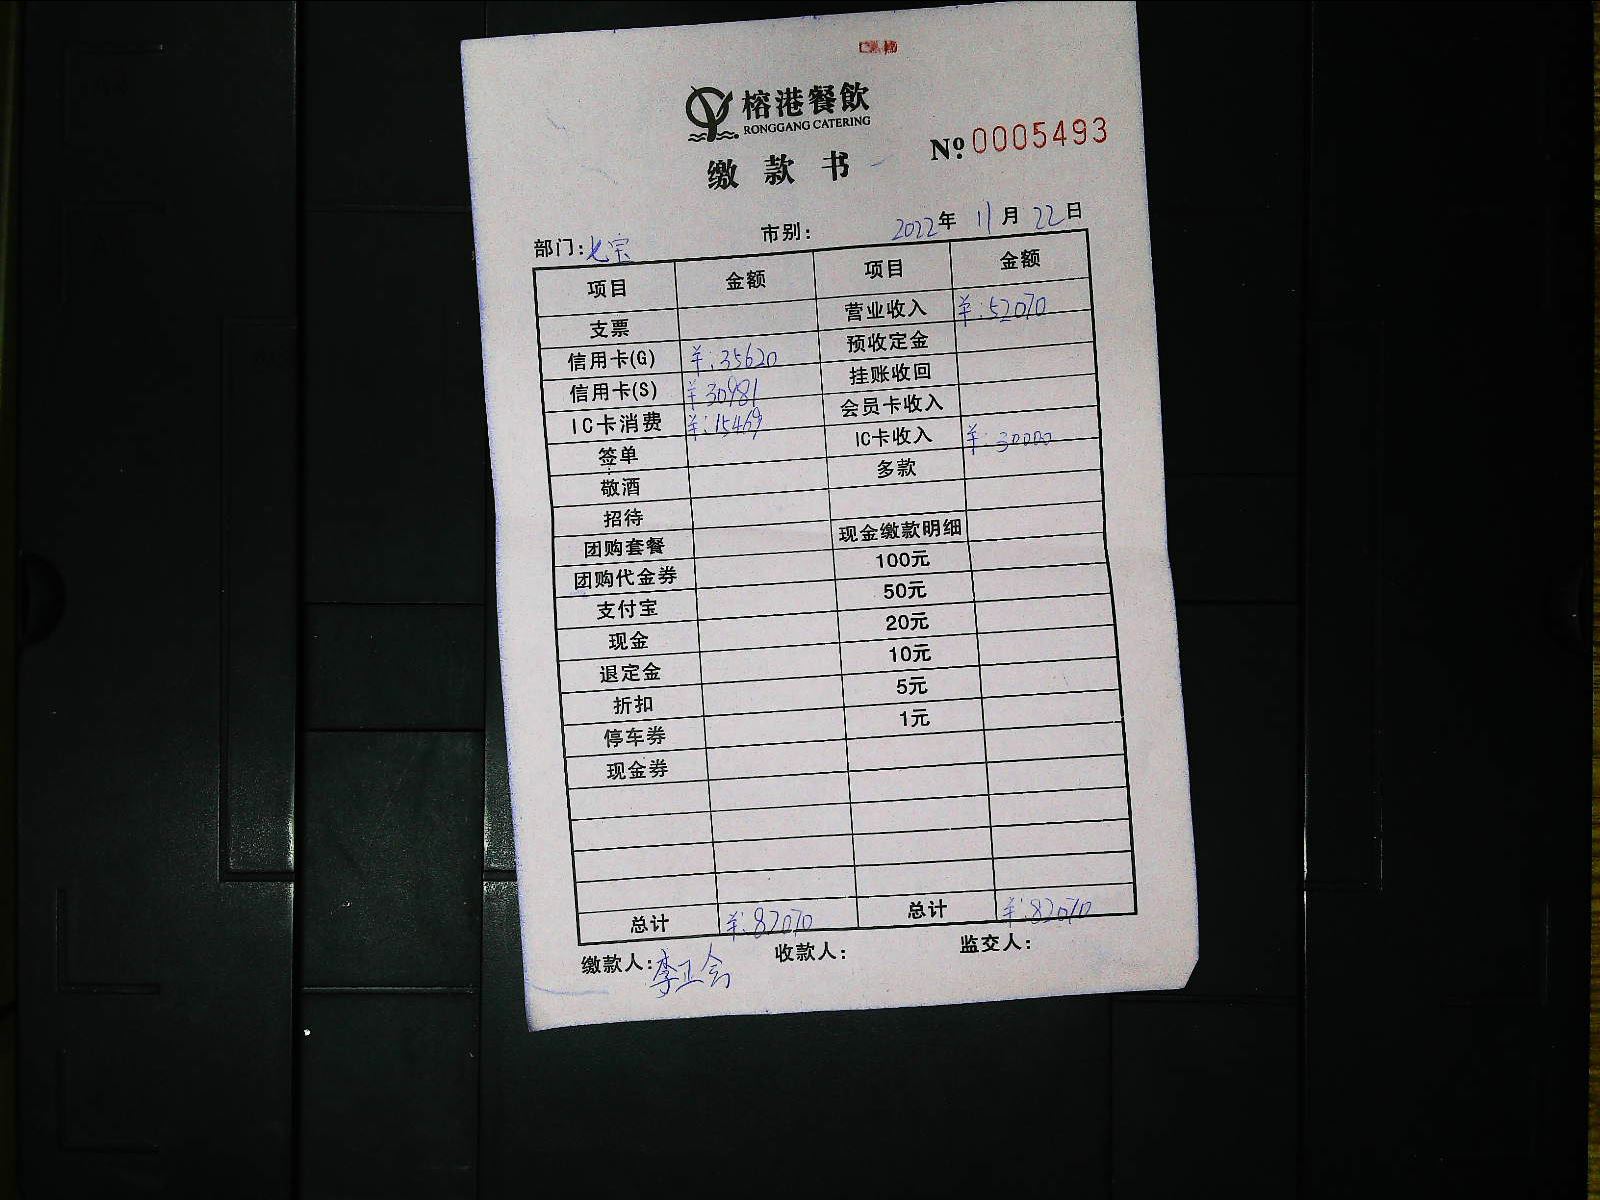 榕港餐飲
RONGGANG CATERING
缴款书
Nº 0005493
部门:七宗 市别: 2022年 11月 22日
项目 金额 项目 金额
支票 营业收入 ¥:52070
信用卡(G) ¥:35620 预收定金
信用卡(S) ¥30981 挂账收回
IC卡消费 ¥:15469 会员卡收入
签单 IC卡收入 ¥:30000
敬酒 多款
招待
团购套餐 现金缴款明细
团购代金券 100元
支付宝 50元
现金 20元
退定金 10元
折扣 5元
停车券 1元
现金券
总计 ¥:82070 总计 ¥:82070
缴款人:李正会 收款人: 监交人: